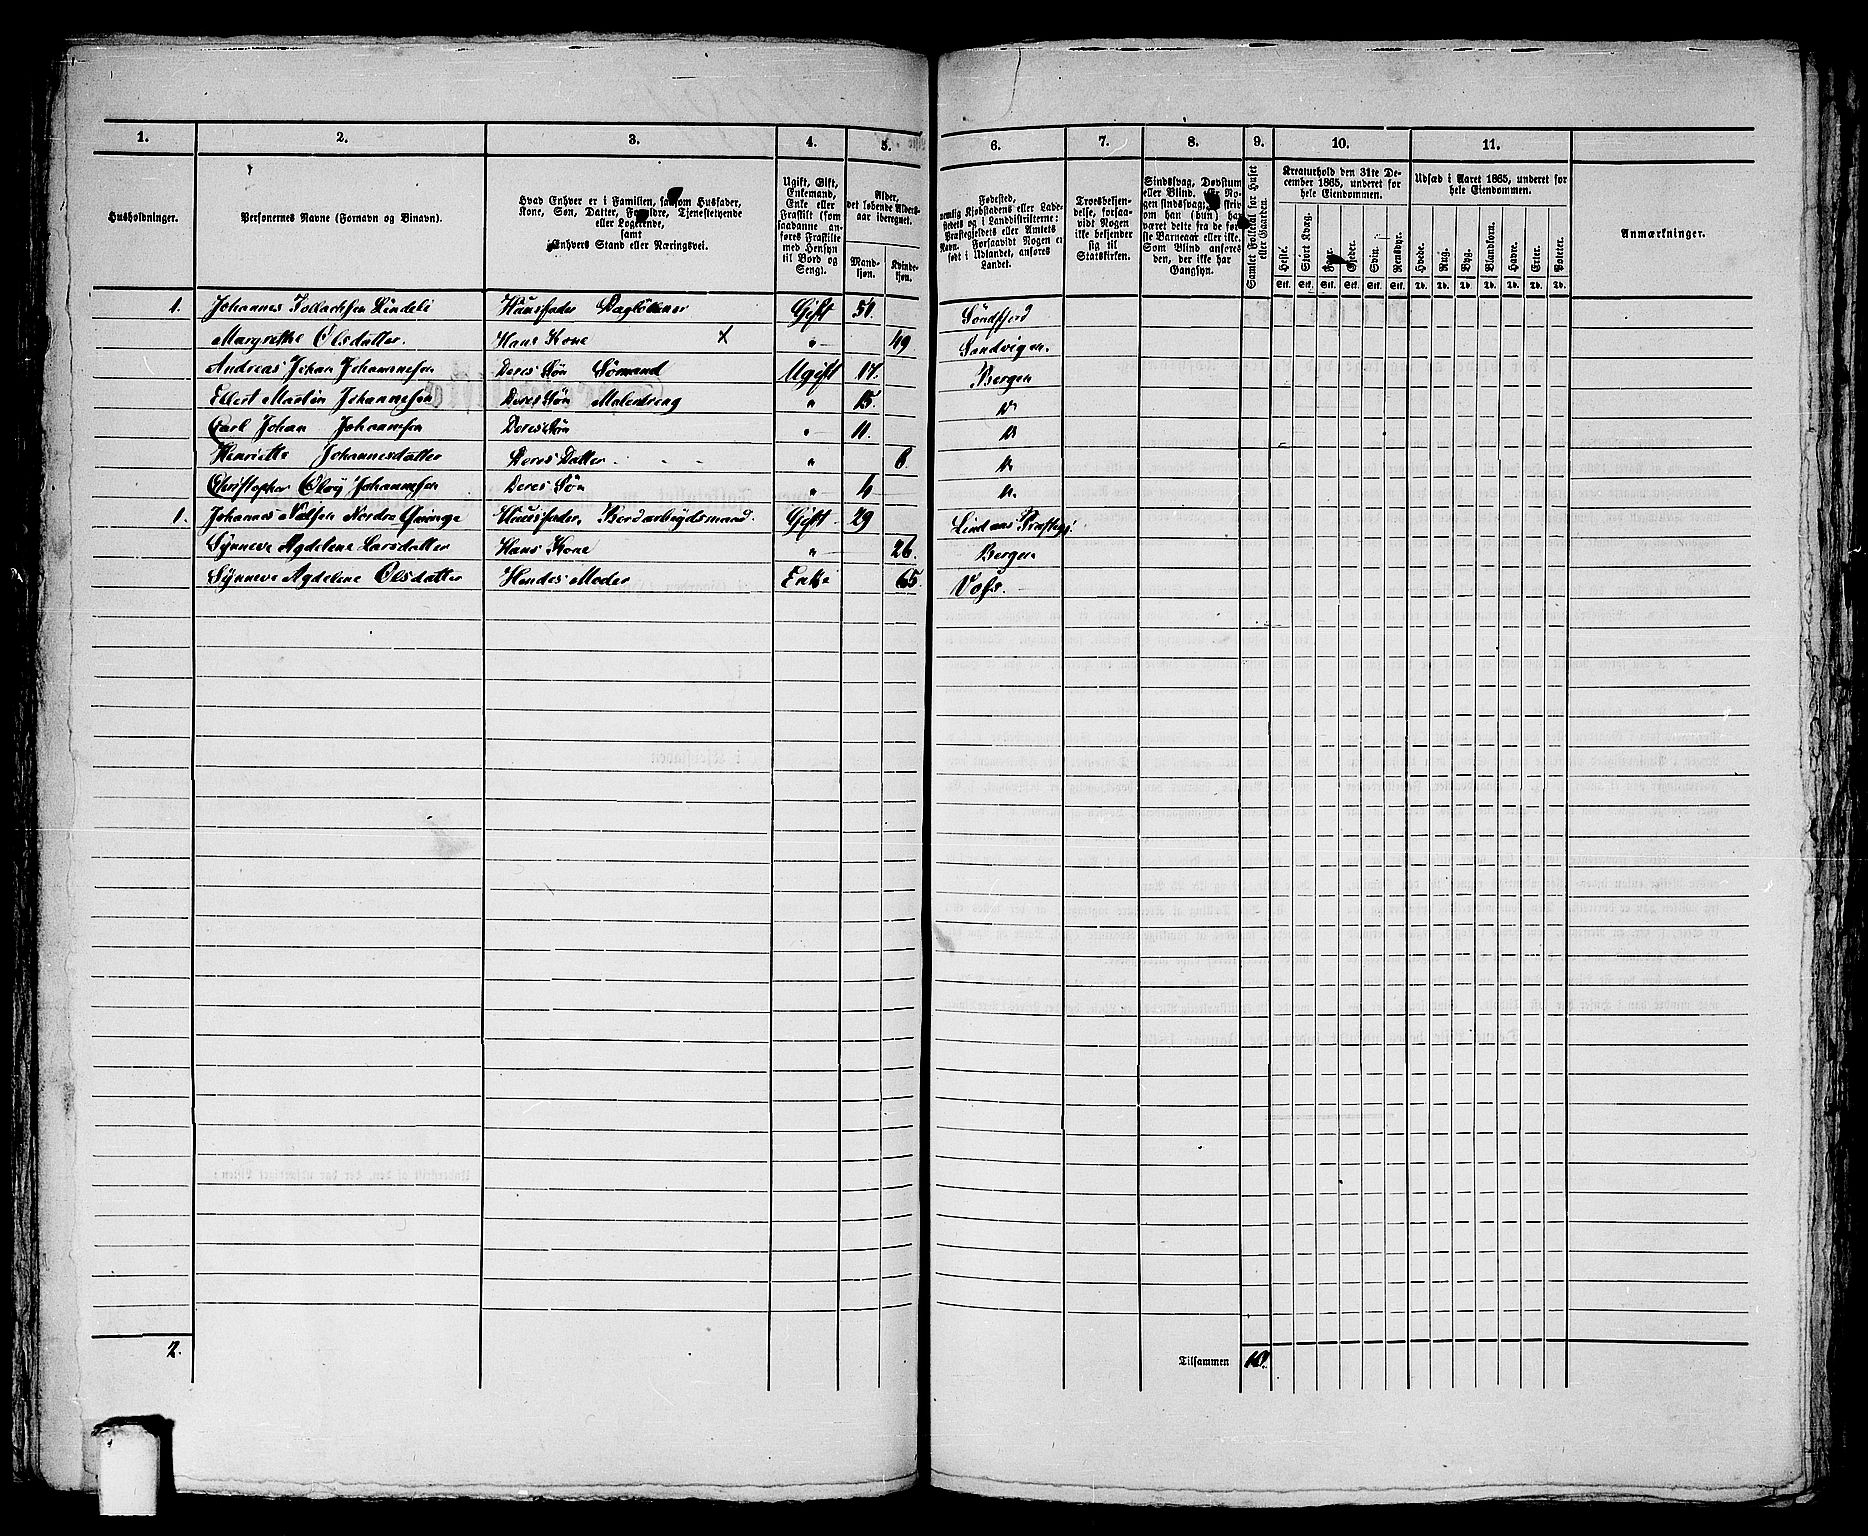 1. 2. 3. 4. 5. 6. 7. 8. 9. 10. 11.
Husholdninger.
Personernes Navne (Fornavn og Binavn).
Hvad Enhver er i Familien, saasom Husfader, Kone, Søn, Datter, Forældre, Tjenestetyende eller Logerende, samt Enhvers Stand eller Næringsvei.
Ugift, Gift, Enkemand, Enke eller Fraskilt (som saadanne anføres Fraskilte med Hensyn til Bord og Seng).
Alder, det løbende Alders-aar iberegnet.
Mand-kjøn. Kvinde-kjøn.
Fødested, nemlig Kjøbstadens eller Ladestedets og i Landdistrikterne: Præstegjeldets eller Amtets Navn. Forsaavidt Nogen er født i Udlandet, anføres Landet.
Troesbekjendelse, forsaavidt Nogen ikke bekjender sig til Statskirken.
Sindssvag, Døvstum eller Blind. Er Nogen sindssvag, døvstum han (hun) har været dette fra de første Barneaar eller ikke. Som Blind anføres den, der ikke har Gangsyn.
Samlet Folketal for Huset eller Gaarden.
Kreaturhold den 31te December 1865, underet for hele Eiendommen.
Heste. Stort Kvæg. Faar. Gjeder. Svin. Rensdyr.
Stk. Stk. Stk. Stk. Stk. Stk.
Udsæd i Aaret 1865, underet for hele Eiendommen.
Hvede. Rug. Byg. Blandkorn. Havre. Erter. Poteter.
Td. Td. Td. Td. Td. Td. Td.
Anmærkninger.
1. Johannes Lindeli Huusfader Dagløhner Gift 51. Søndfjord
Margrethe Olsdatter. Hans Kone x " 49 Sandvigen.
Andreas Johan Johannesen Deres Søn Sømand Ugift 17. Bergen
Ellert Martin Johannesen Deres Søn Malerdreng " 15. "
Carl Johan Johannesen Deres Søn " 11. "
Henriette Johannesdatter Deres Datter " 8. "
Christopher Johannesen Deres Søn " 4 "
1. Johannes Nilsen Nordre Huusfader, Bordarbeydsmand. Gift 29 Lindaas Præstegj
Synneve Agdelene Larsdatter Hans Kone " 26. Bergen
Synneve Agdelene Olsdatter Hendes Moder Enke 65. Voss.
2. Tilsammen 10.